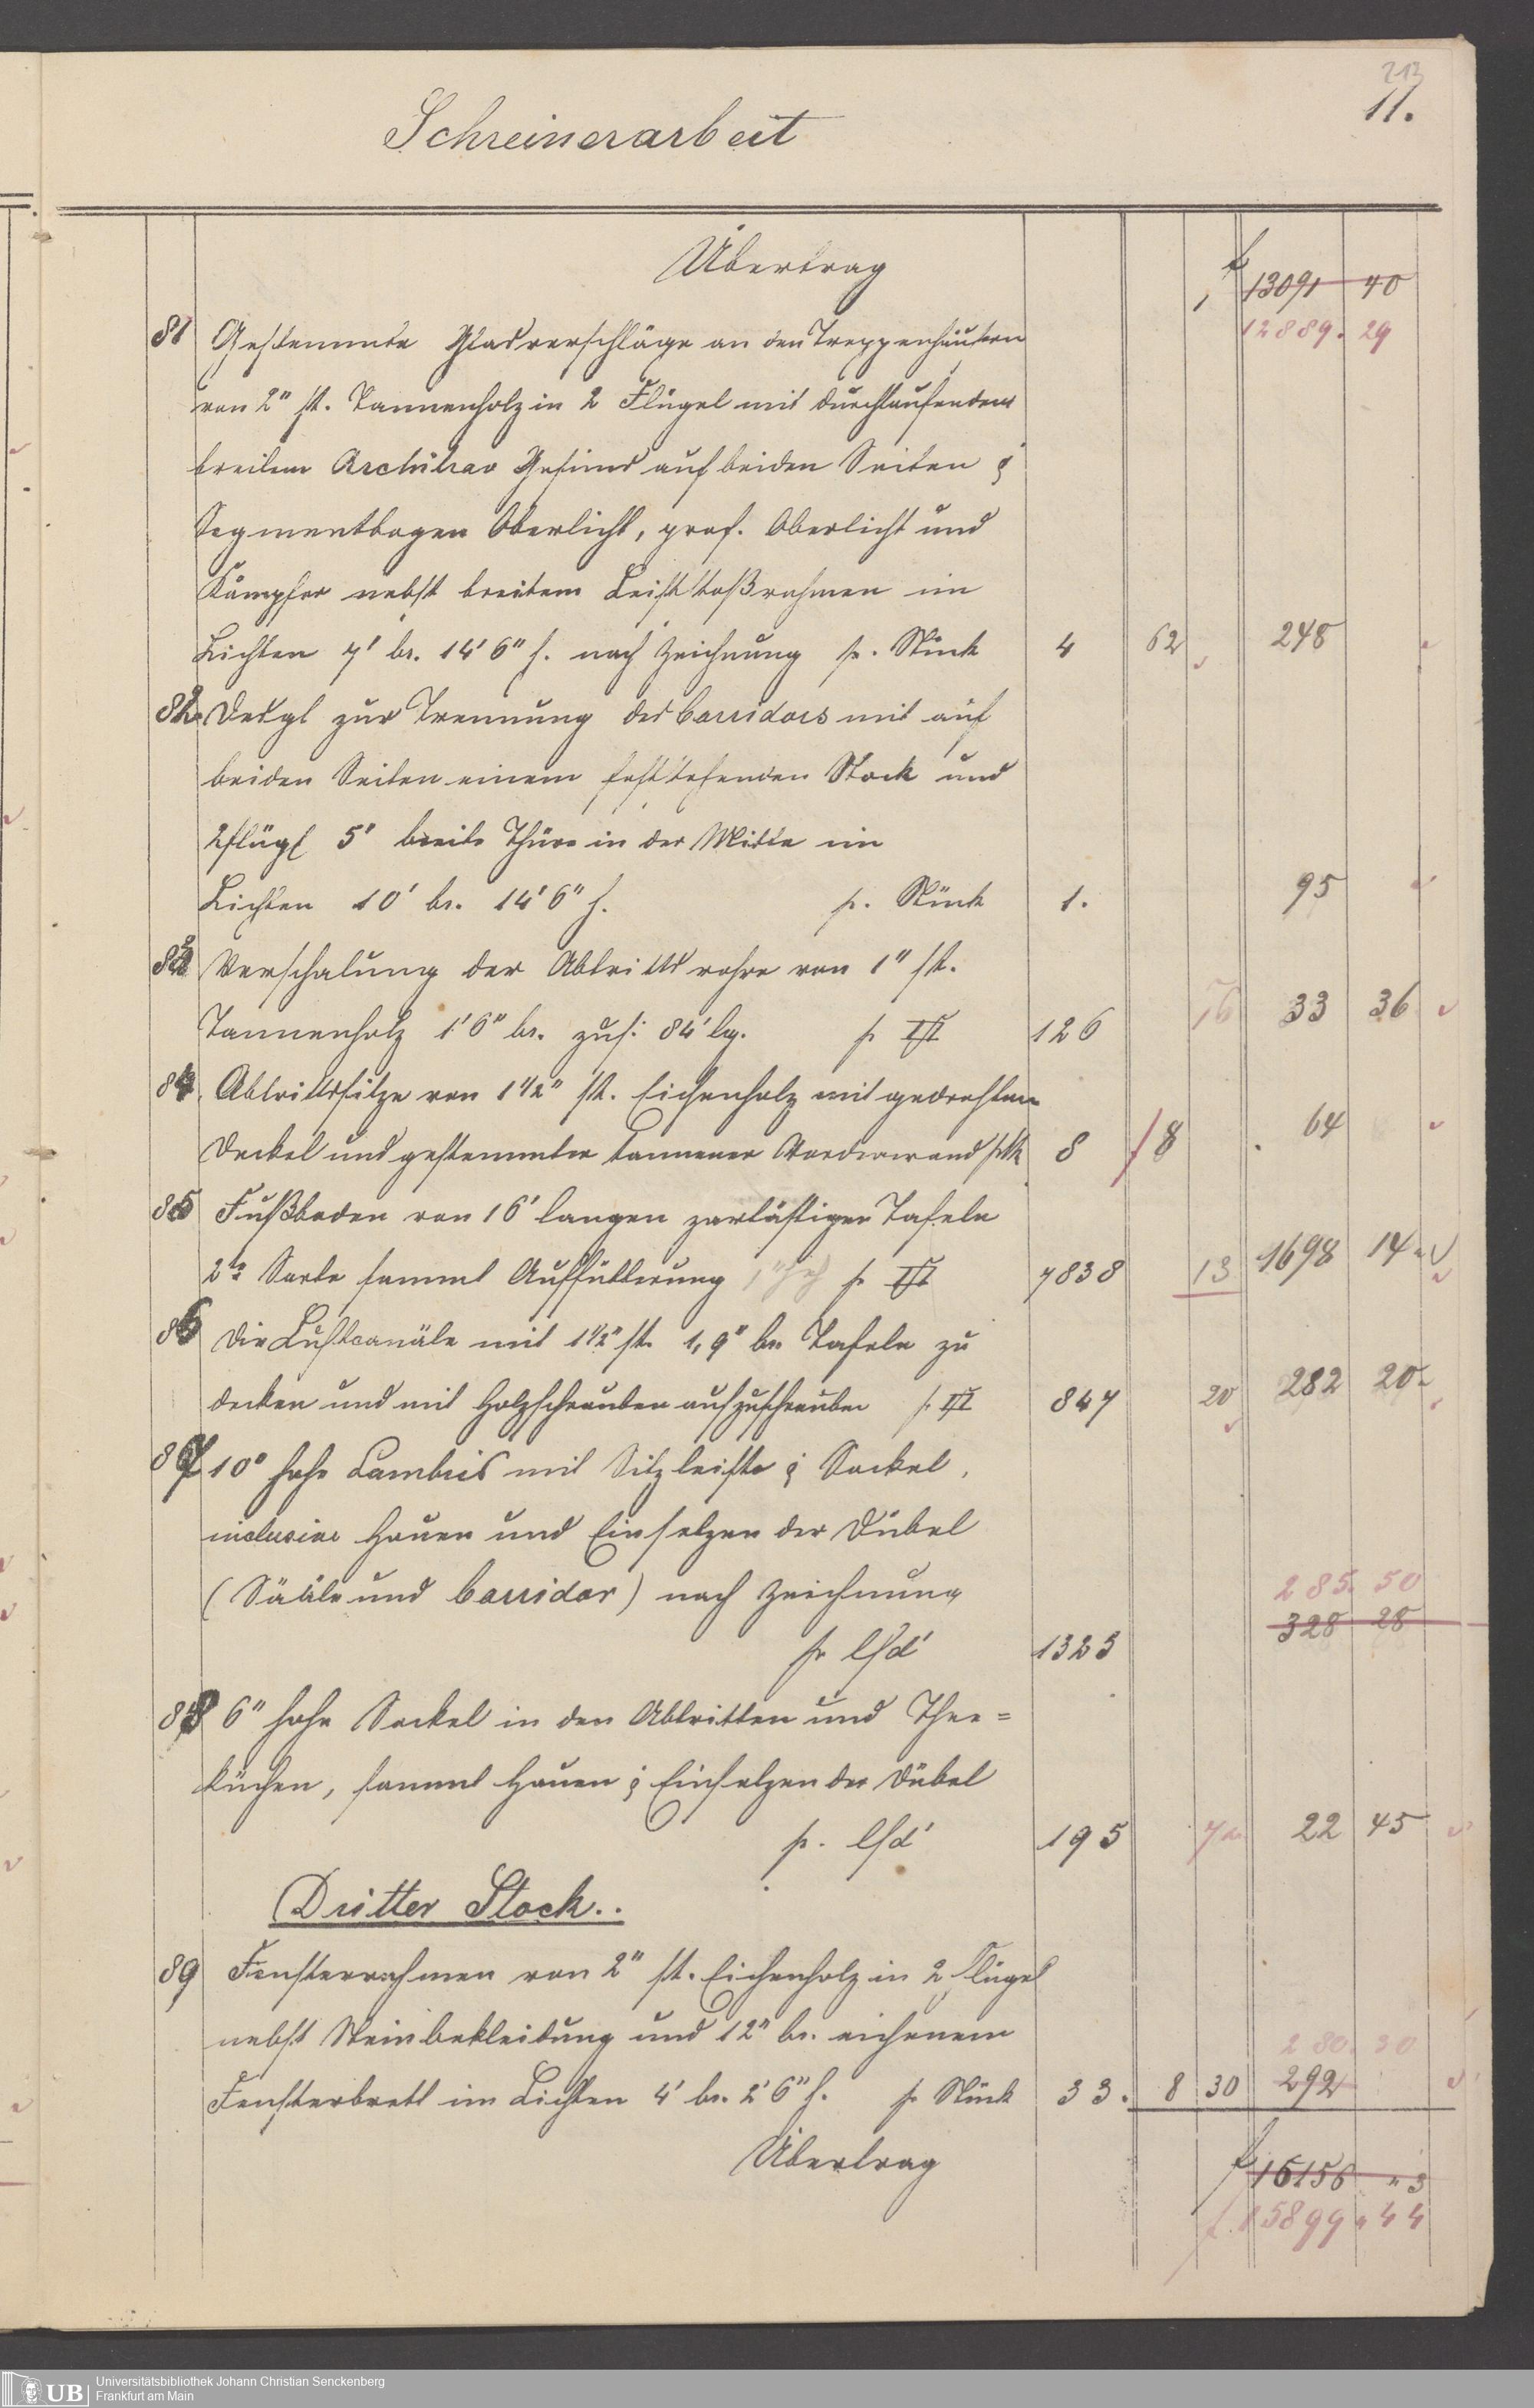 213
11.
Schreinerarbeit
Übertrag f 13091 40
12889. 29
81 Gestemmte Glasverschläge an den Treppenhäusern
von 2" st. Tannenholz in 2 Flügel mit durchlaufendem
breitem Architrav Gesims auf beiden Seiten &
Segmentbogen Oberlicht, prof. Oberlicht und
Kämpfer nebst breitem rahmen im
Lichten 7' br. 14' 6" h. nach Zeichnung pr. Stück 4 62 248
82 Desgl zur Trennung des Corridors mit auf
beiden Seiten einem feststehenden Stock und
2flügl 5' breite Thüre in der Mitte im
Lichten 10' br. 14' 6" h. pr. Stück 1. 95
83 Verschalung der Abtrittsrohre von 1" st.
Tannenholz 1' 6" br. zus: 84' lg. pr 126 16 33 36
84 Abtrittssitze von 1 1/2" st. Eichenholz mit gedrehtem
Deckel und gestemmter tannener Vorderwand 8 8 64
85 Fußboden von 16' langen Tafeln
2te Sorte sammt Auffütterung pr 7838 13 1698 14
86 Die Luftcanäle mit 1 1/2" st. 1,9" br. Tafeln zu
decken und mit Holzschrauben aufzuschrauben pr 847 20 282 20
87 10" hohe Lambris mit Sitzleiste & Sockel,
inclusive Hauen und Einsetzen der Dübel
(Sääle und Corridor) nach Zeichnung
285. 50
pr lfd' 1325 328 28
88 6" hohe Sockel in den Abtritten und Thee=
küchen, sammt Hauen & Einsetzen der Dübel
pr. lfd' 195 7 22 45
Dritter Stock..
89 Fensterrahmen von 2" st. Eichenholz in 2 Flügel
nebst Steinbekleidung und 12" br. eichenem
280. 30
Fensterbrett im Lichten 4' br. 2' 6" h. pr Stück 33. 8 30 292
Übertrag f 16156 " 3
f. 15899 " 44
UB Universitätsbibliothek Johann Christian Senckenberg
Frankfurt am Main